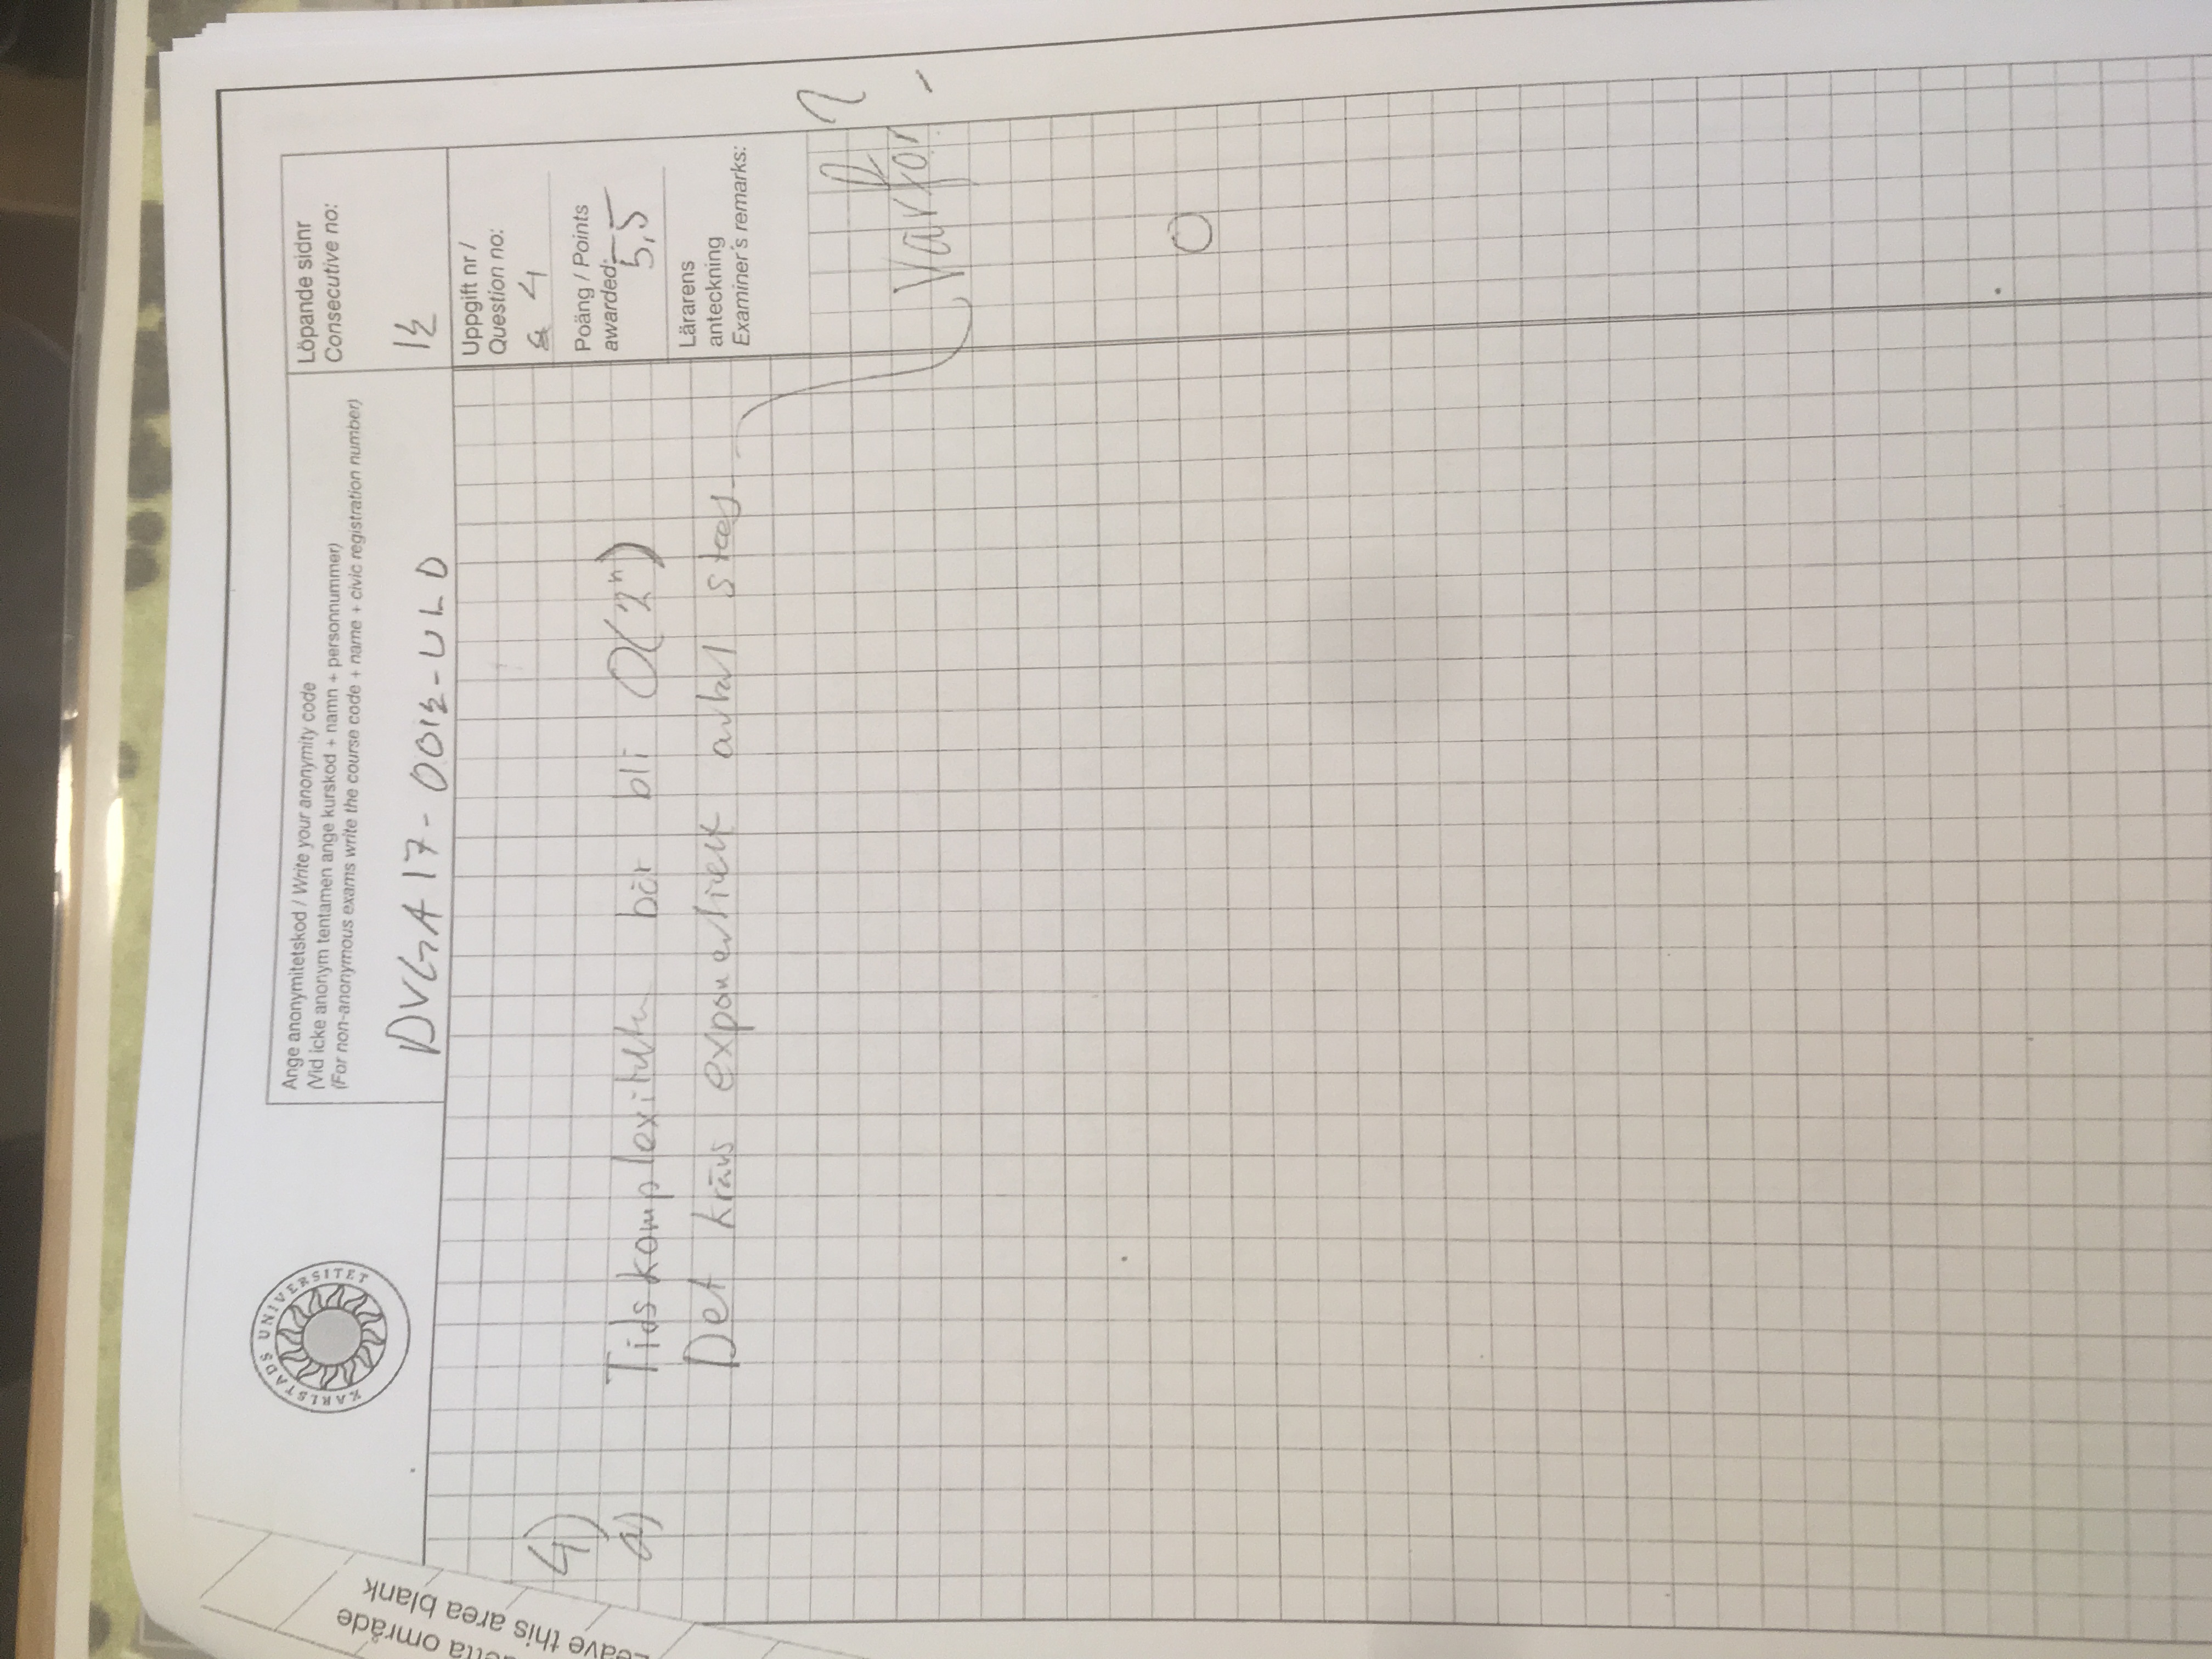 detta område
Leave this area blank
KARLSTADS UNIVERSITET
Ange anonymitetskod / Write your anonymity code
(Vid icke anonym tentamen ange kurskod + namn + personnummer)
(For non-anonymous exams write the course code + name + civic registration number)
DVGA17-0012-ULD
Löpande sidnr
Consecutive no:
12
Uppgift nr /
Question no:
4
Poäng / Points
awarded:
5,5
Lärarens
anteckning
Examiner's remarks:
4)
a) Tidskomplexiteten bör bli O(2ⁿ)
Det krävs exponentiellt antal steg
Varför?
O